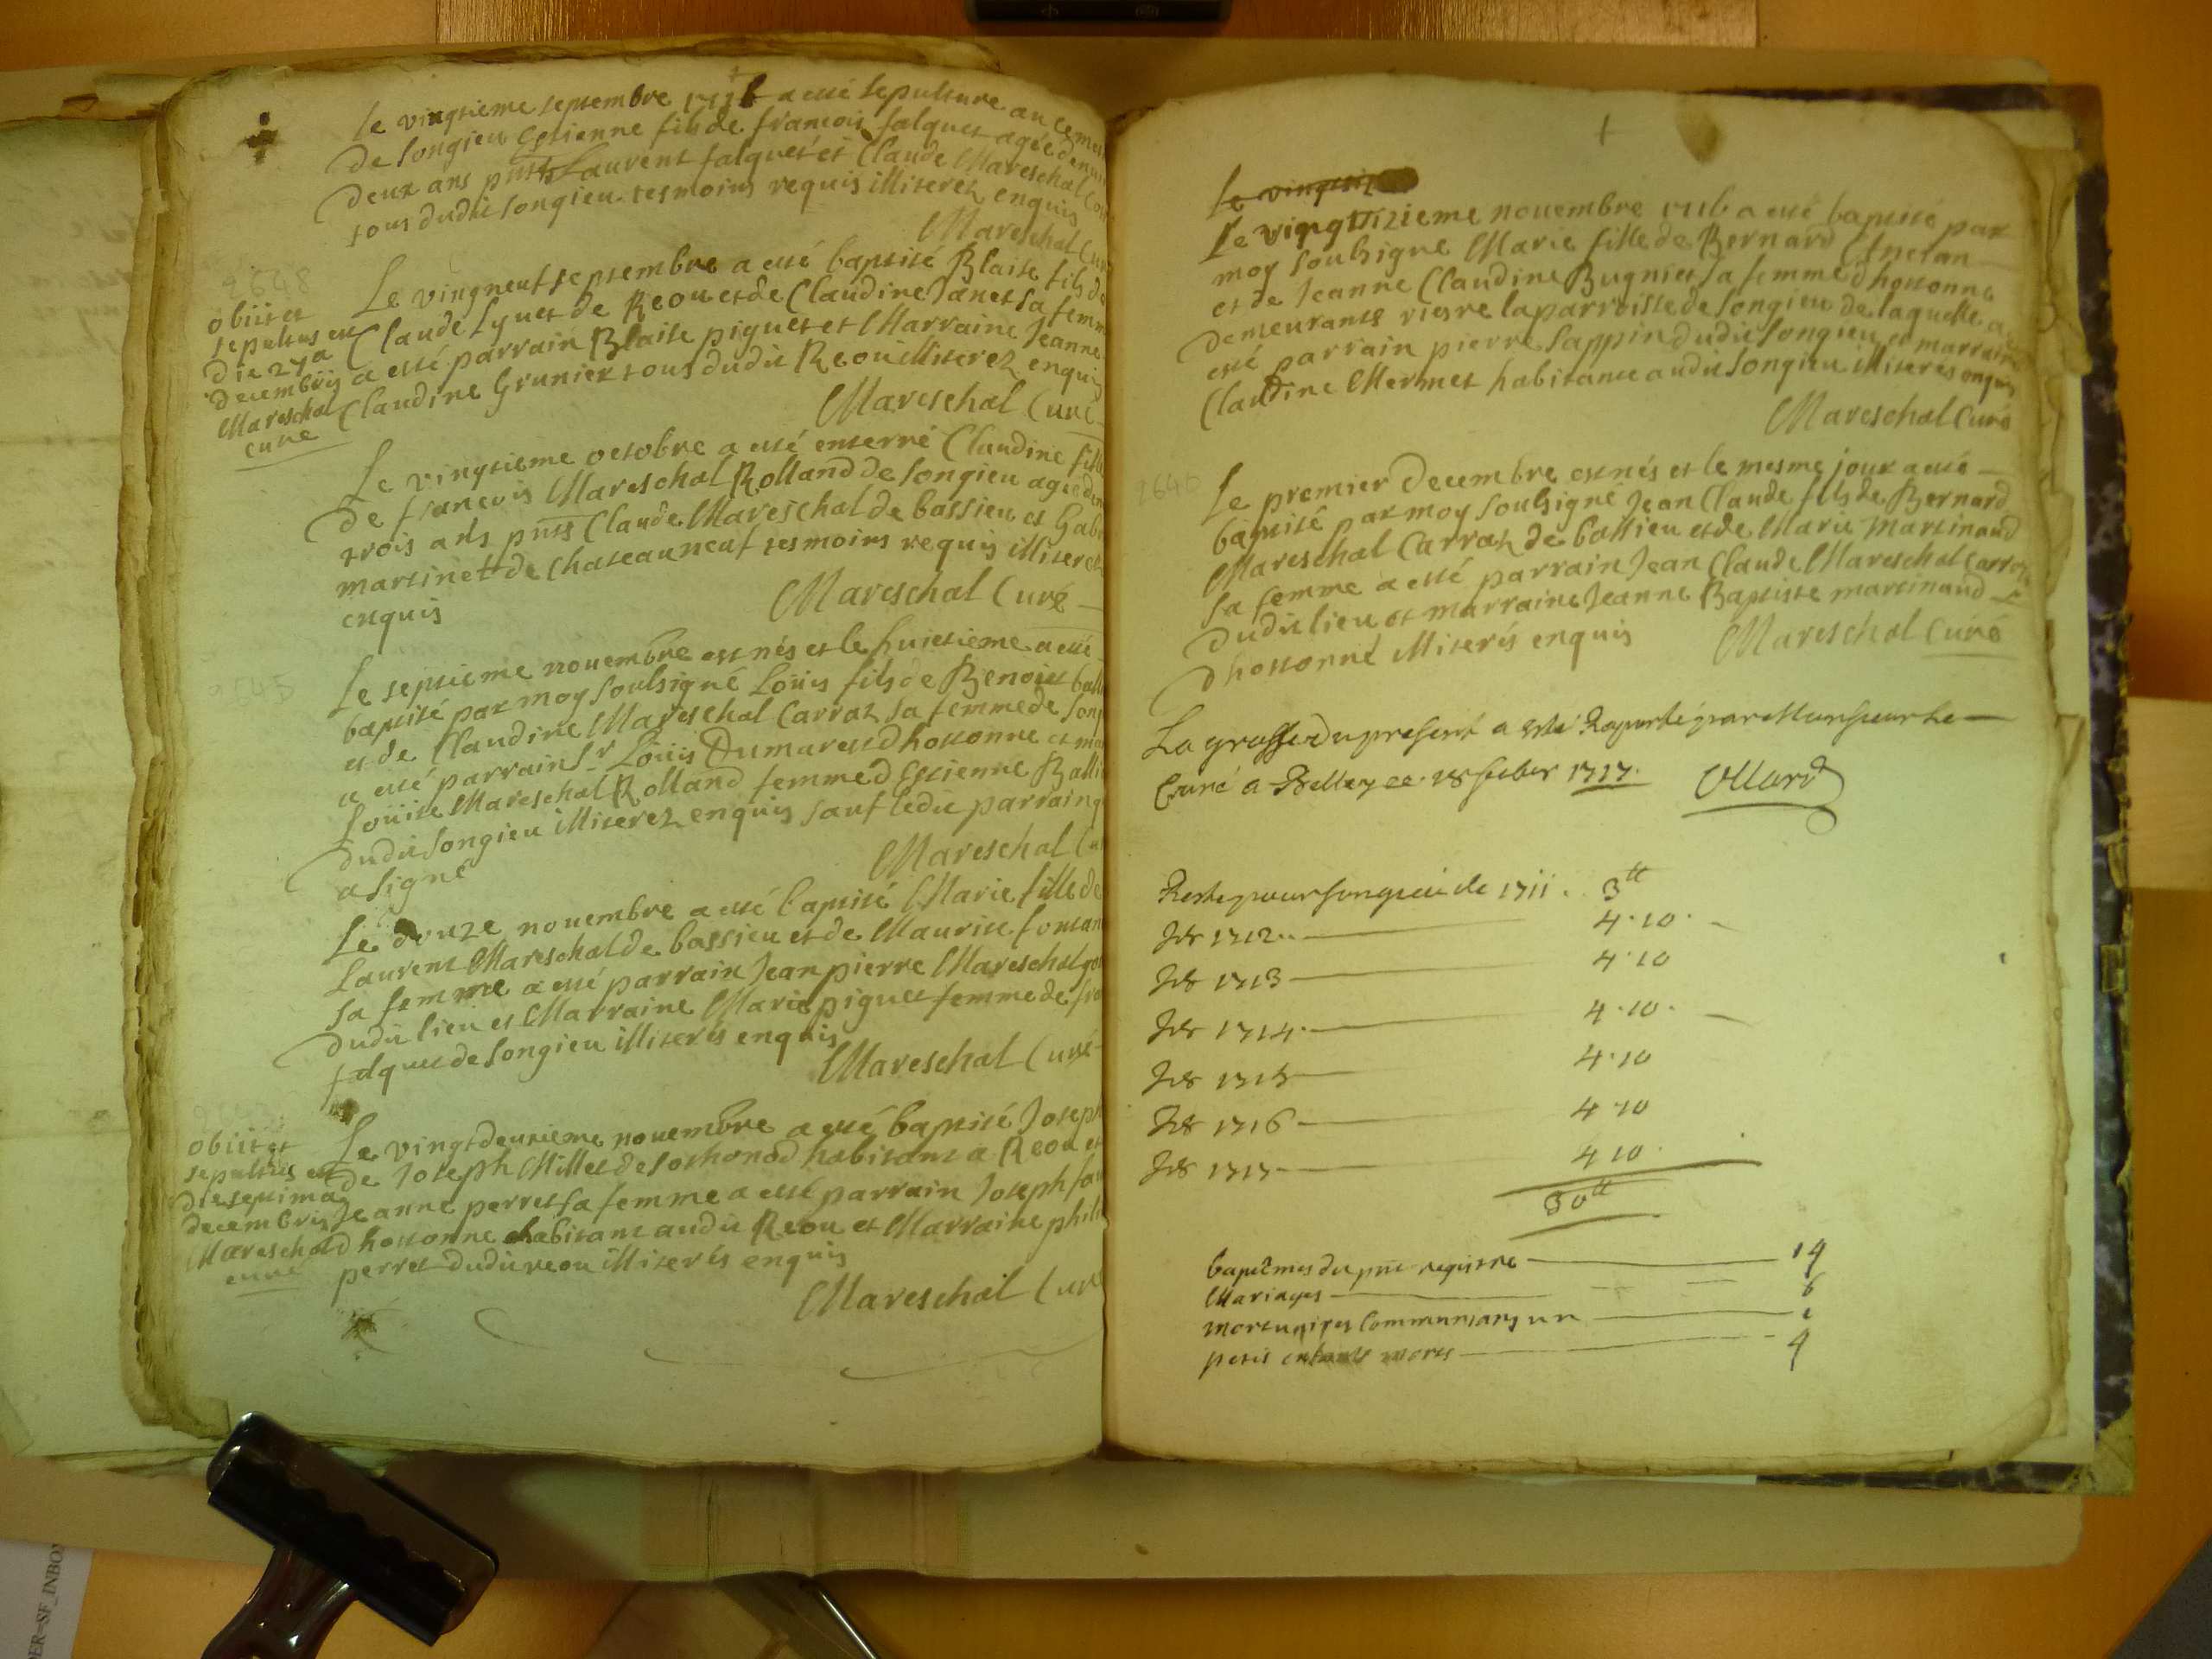 le vingtieme septembre 1716 a esté sepulture au ceme
de songieu Estienne fils de francois falquet agée denui
deux ans pnts Laurent falquet et Claude Mareschal
tous dudit songieu tesmoins requis illiterez enquis
Mareschal Cur
2648
Le vingneuf septembre a esté baptisé Blaise fils de
Claude Lyuet de Reou et de Claudine Janet sa femm
a esté parrain Blaise piquet et Marraine Jeanne
Claudine Grunier tous dudit Reou illiterez enquis
Mareschal Curé
obiit et
sepultus est
die 27a
decembris
Mareschal
curé
Le vingtieme octobre a esté enterré Claudine fille
de francois Mareschal Rolland de songieu agée den
trois ans pnts Claude Mareschal de bassieu et Gab
martinet de Chateauneuf tesmoins requis illiterez
enquis
Mareschal Curé
2645
Le septieme nouembre est nés et le huictieme a esté
baptisé par moy soubsigné Loüis fils de Benoist ball
et de Claudine Mareschal Carraz sa femme de song
a esté parrain Sr Loüis Dumarest dhostonne et ma
Loüise Mareschal Rolland femme dEstienne Balli
dudit songieu illiterez enquis sauf ledit parrain q
a signé
Mareschal Cu
Le douze nouembre a esté baptisé Marie fille de
Laurent Mareschal de bassieu et de Maurise fontan
sa femme a esté parrain Jean pierre Mareschal go
dudit lieu et Marraine Marie piquet femme de fra
falquet de songieu illiterés enquis
Mareschal Curé
Le vingtdeuxieme nouembre a esté baptisé Joseph
de Joseph Millet de sothonod habitant a Reou et
Jeanne perret sa femme a esté parrain Joseph fa
dhostonne habitant audit Reou et Marraine phili
perret dudit reou illiterés enquis
Mareschal Curé
obiit et
sepultus est
die septima
decembris
Mareschal
curé
Le vingtsix
Le vingtsizieme nouembre 1716 a esté baptisé par
moy soubsigné Marie fille de Bernard Ancian
et de Jeanne Claudine Bugniet sa femme dhostonne
demeurants riere la parroisse de songieu de laquelle a
esté parrain pierre sappin dudit songieu et marraine
Claudine Mermet habitante audit songieu illiterés enquis
Mareschal Curé
2646
Le premier decembre est nés et le mesme jour a esté
baptisé par moy soubsigné Jean Claude fils de Bernard
Mareschal Carraz de bassieu et de Marie martinaud
sa femme a esté parrain Jean Claude Mareschal Carraz
dudit lieu et marraine Jeanne Baptiste martinaud
dhostonne illiterés enquis
Mareschal Curé
La grosse du present a esté Raporté par Monsieur le
Curé a Belley ce 18 1717. Ollard
Reste pour son de 1711. 3tt
1712 4.10.
1713 4.10
1714. 4.10.
1715 4.10
1716 4 10
1717 4 10.
30tt
baptêmes du pnt registre 14
Mariages 6
mortuaires Communians un 1
petis enfants morts 4